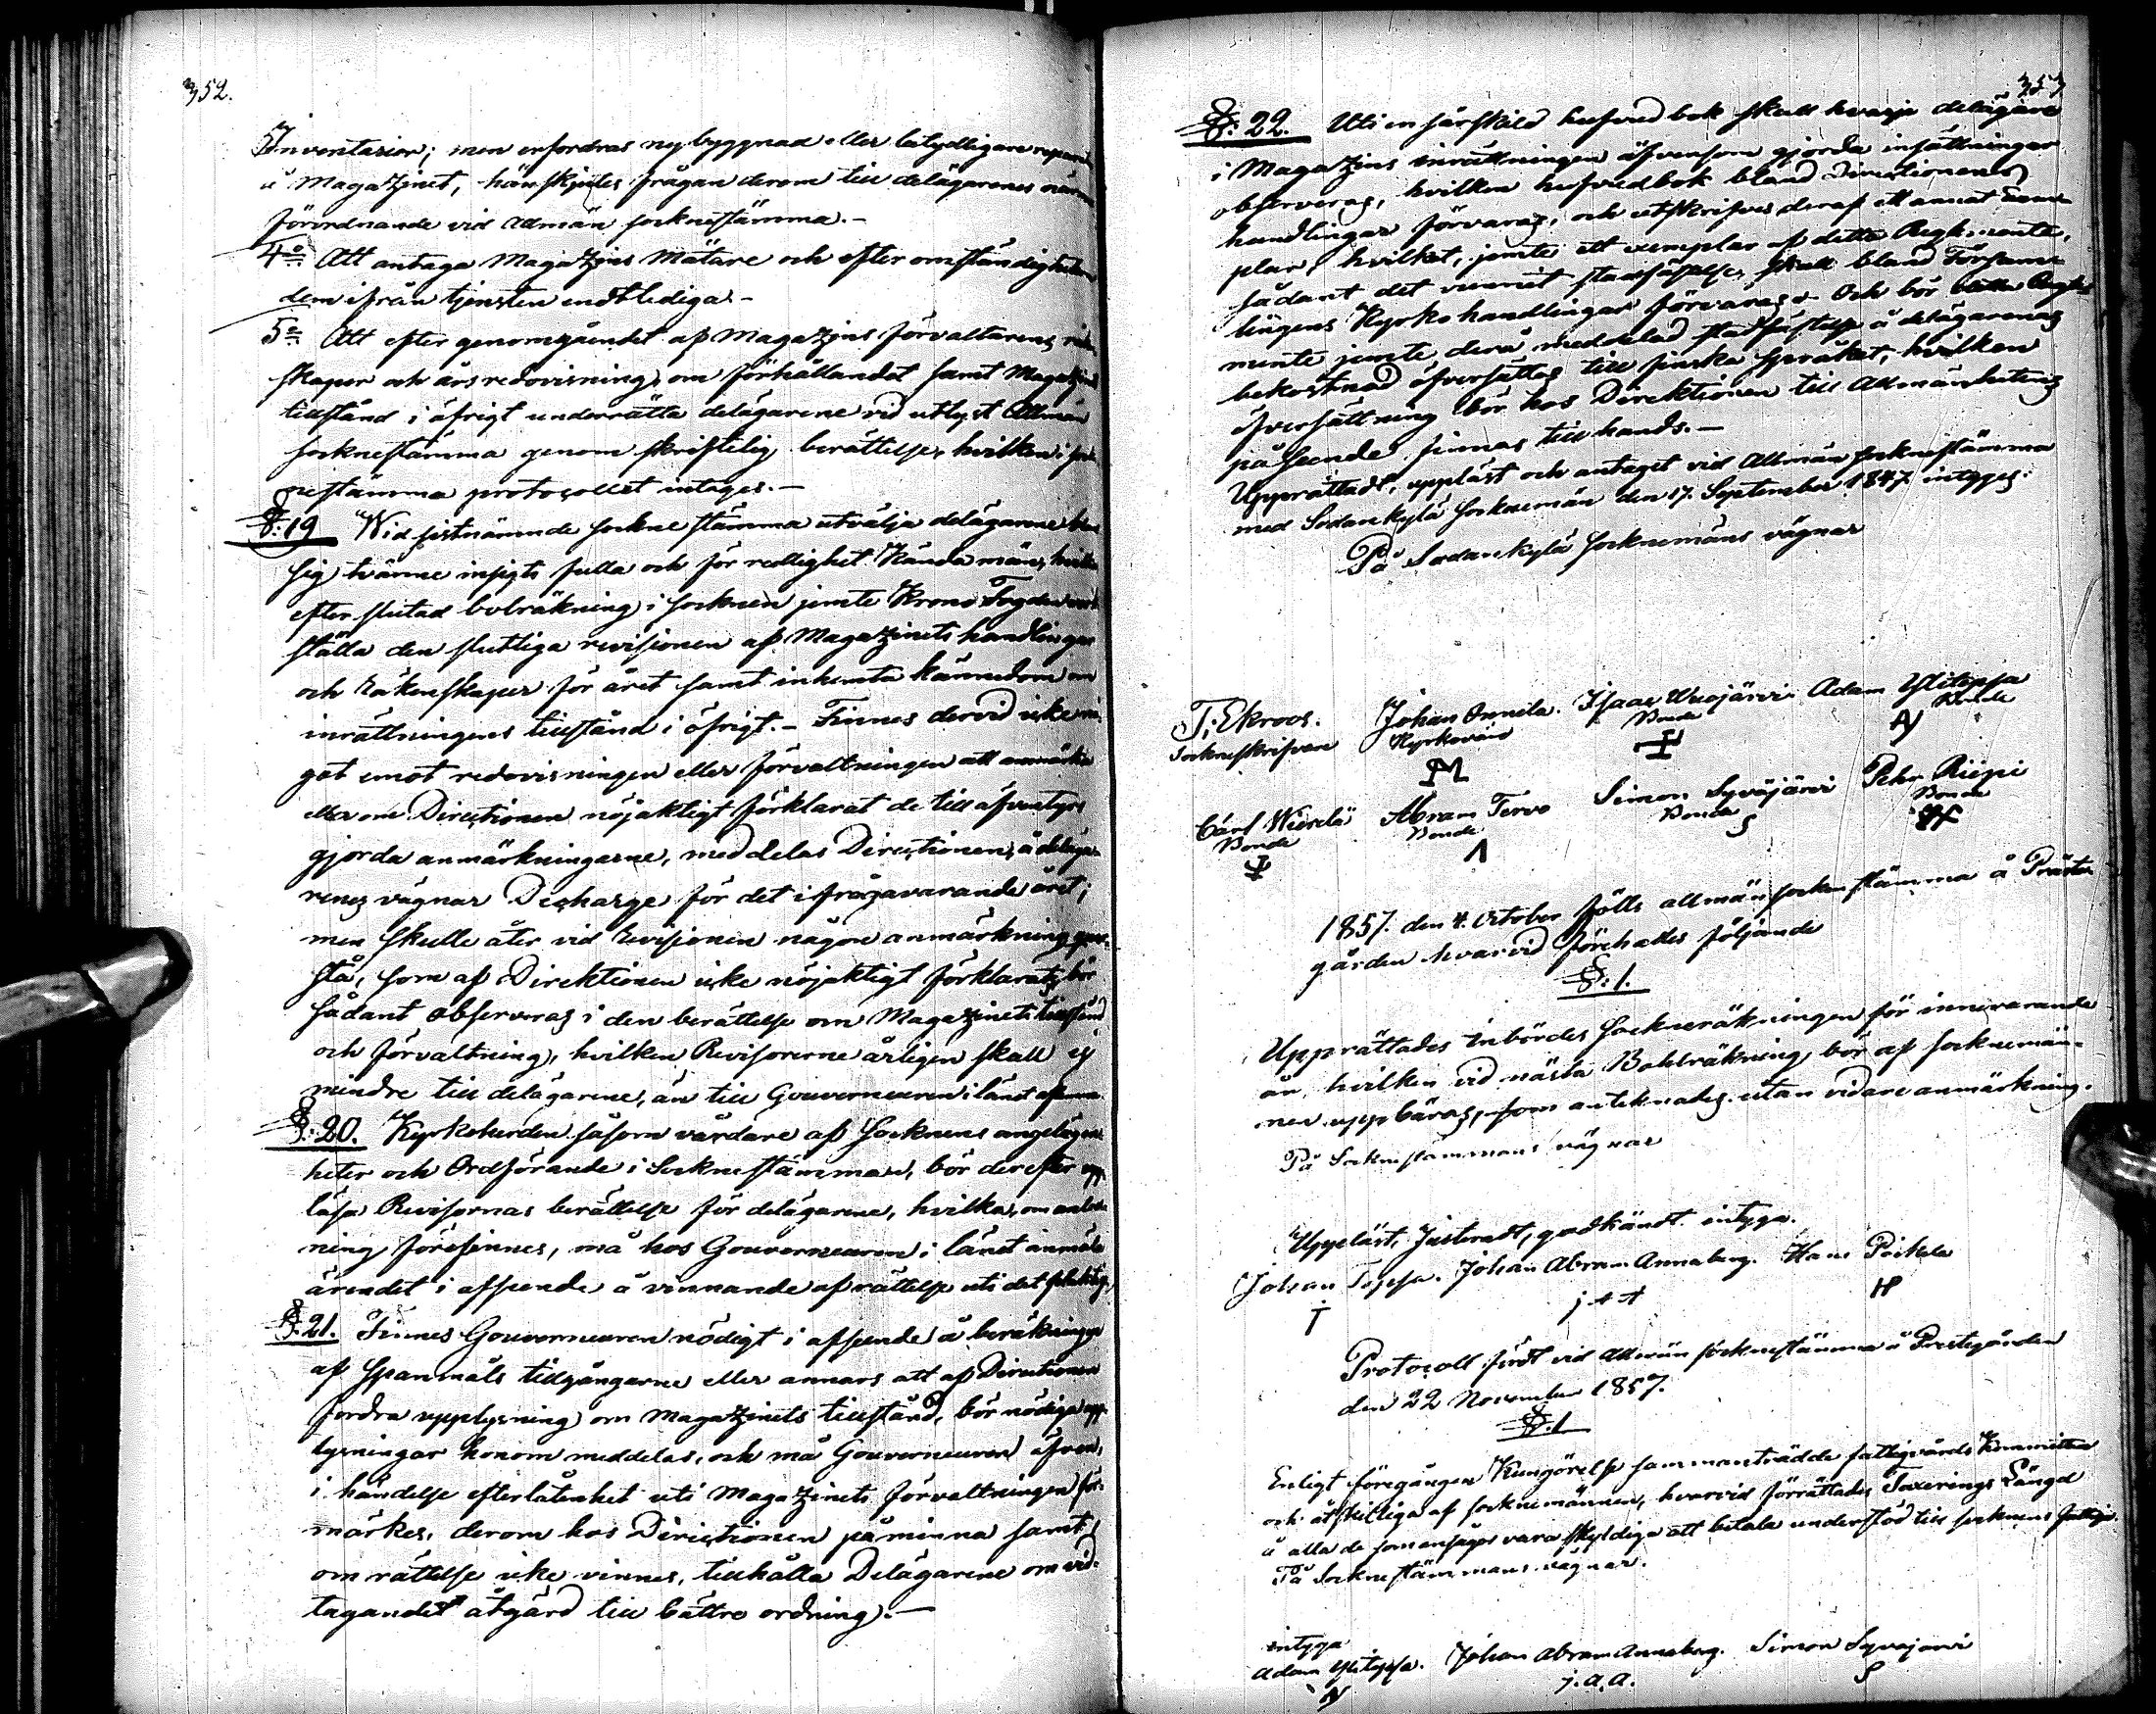 352.
Inventarier; men erfordras ny byggnad eller betydligare
å Magazinet, hänskjutes frågan derom till delägarenes
förordnande vid allmän socknestämma.-
4o Att antaga Magazins Mätare och efter omständigheterne
dem ifrån tjensten endtlediga.-
5o Att efter genomgåendet af Magazins förvaltarens
skaper och års redovisning, om förhållandet samt Magazins
tillstånd i öfrigt underrätta delägarene vid utlyst Allmän
socknestämma genom skriftelig berättelse, hvilken i sock-
nestämma protocollet intages.-
§: 19 Wid sistnämnde sockne stämma utvälja delägarene
sig tvänne insigts fulla och för redlighet kända män, hvilka
efter slutad bolräkning i socknen jemte Krono Fogden verk-
ställa den slutliga revisionen af Magazinets handlingar
och räkenskaper för året samt inhemta kännedom om
inrättningens tillstånd i öfrigt.- Finnes dervid icke nå-
got emot redovisningen eller förvaltningen att anmärka
eller om Directionen nöjaktigt förklarat de till äfventyrs
gjorda anmärkningarne, meddelas Directionen, å deläga-
renes vägnar Decharge för det ifrågavarande året;
men skulle åter vid Revisionen någon anmärkning
stå, som af Direktionen icke nöjaktigt förklarats, bör
sådant observeras i den berättelse om Magazinets tillstånd
och förvaltning, hvilken Revisorerne årligen skall ej
mindre till delägarene, än till Gouverneuren i länet
§: 20. Kyrkoherden såsom vårdare af Socknens angelägen-
heter och Ordförande i Socknestämman, bör derefter upp-
läsa Revisornas berättelse för delägarene, hvilka, om anled-
ning förefinnes, må hos Gouverneuren i länet anmäla
ärendet i afseende å vinnande af rättelse uti det
§: 21. Finnes Gouverneuren nödigt i afseende å beräkningen
af Spanmåls tillgångarne eller annars att af Directionen
fordra upplysning om Magazinets tillstånd, bör nödiga upp-
lysningar honom meddelas, och må Gouverneuren äfven,
i händelse efterlåtenhet uti Magazinets förvaltningen för-
märkes, derom hos Directionen påminna samt,
om rättelse icke vinnes, tillhålla Delägarene om vid-
tagandet åtgärd till bättre ordning.-
353
§: 22. Uti en särskild hufvud bok skall hvarje delägare
i Magazins inrättningen äfvensom gjorda insättningar
observeras, hvilken hufvudbok bland Directionens
handlingar förvaras, och utskrifves deraf ett annat exem-
plar, hvilket, jemte ett exemplar af detta Reglemente,
sådant det vunnit stadfästelse, skall bland Församm-
lingens Kyrko handlingar förvaras. Och bör detta Regle-
mente jemte derå meddelad stadfästelse å delägarenas
bekostnad öfversättas till finska språket, hvilken
öfversättning bör hos Direktionen till Allmänhetens
påseende finnas till hands.-
Upprättadt, uppläst och antaget vid Allmän socknestämma
med Sodankylä socknemän den 17. September 1847. intygas:
På Sodankylä socknemäns vägnar
T: Ekroos. Johan Onnela. Isaac Unajärvi Adam Ylitepsa
Sockneskrifvare Kyrkovärd Bonde Bonde
Carl Wierelä Abram Tervo Simon Syväjärvi Pehr Riipi
Bonde Bonde Bonde Bonde
1857. den 4. October hölls allmän socknestämma å Prästa-
gården hvarvid förehades följande
§: 1.
Upprättades inbördes Sockneräkningen för innevarande
år, hvilken vid nästa Bohlräkning bör af socknemän-
nen uppbäras, som antecknades. utan vidare anmärkning.
På Socknestämmans vägnar
Uppläst, Justeradt, godkändt intyga.
Johan Tepsa. Johan Abram Annaberg. Hans Poikela
T j A A HP
Protocoll fördt vid Allmän socknestämma å Prestegården
den 22 November 1857.
§. 1
Enligt föregången Kungörelse sammanträdde fattigvårds Kommitten
och åtskilliga af socknemännen, hvarvid förrättades Taxerings Längd
å alla de som anseges vara skyldige att betala understöd till socknens fattige.
På Socknestämmans vägnar.
intyga
Adam Ylitepsa. Johan Abram Annaberg. Simon Syvejarvi
j. a. a. S